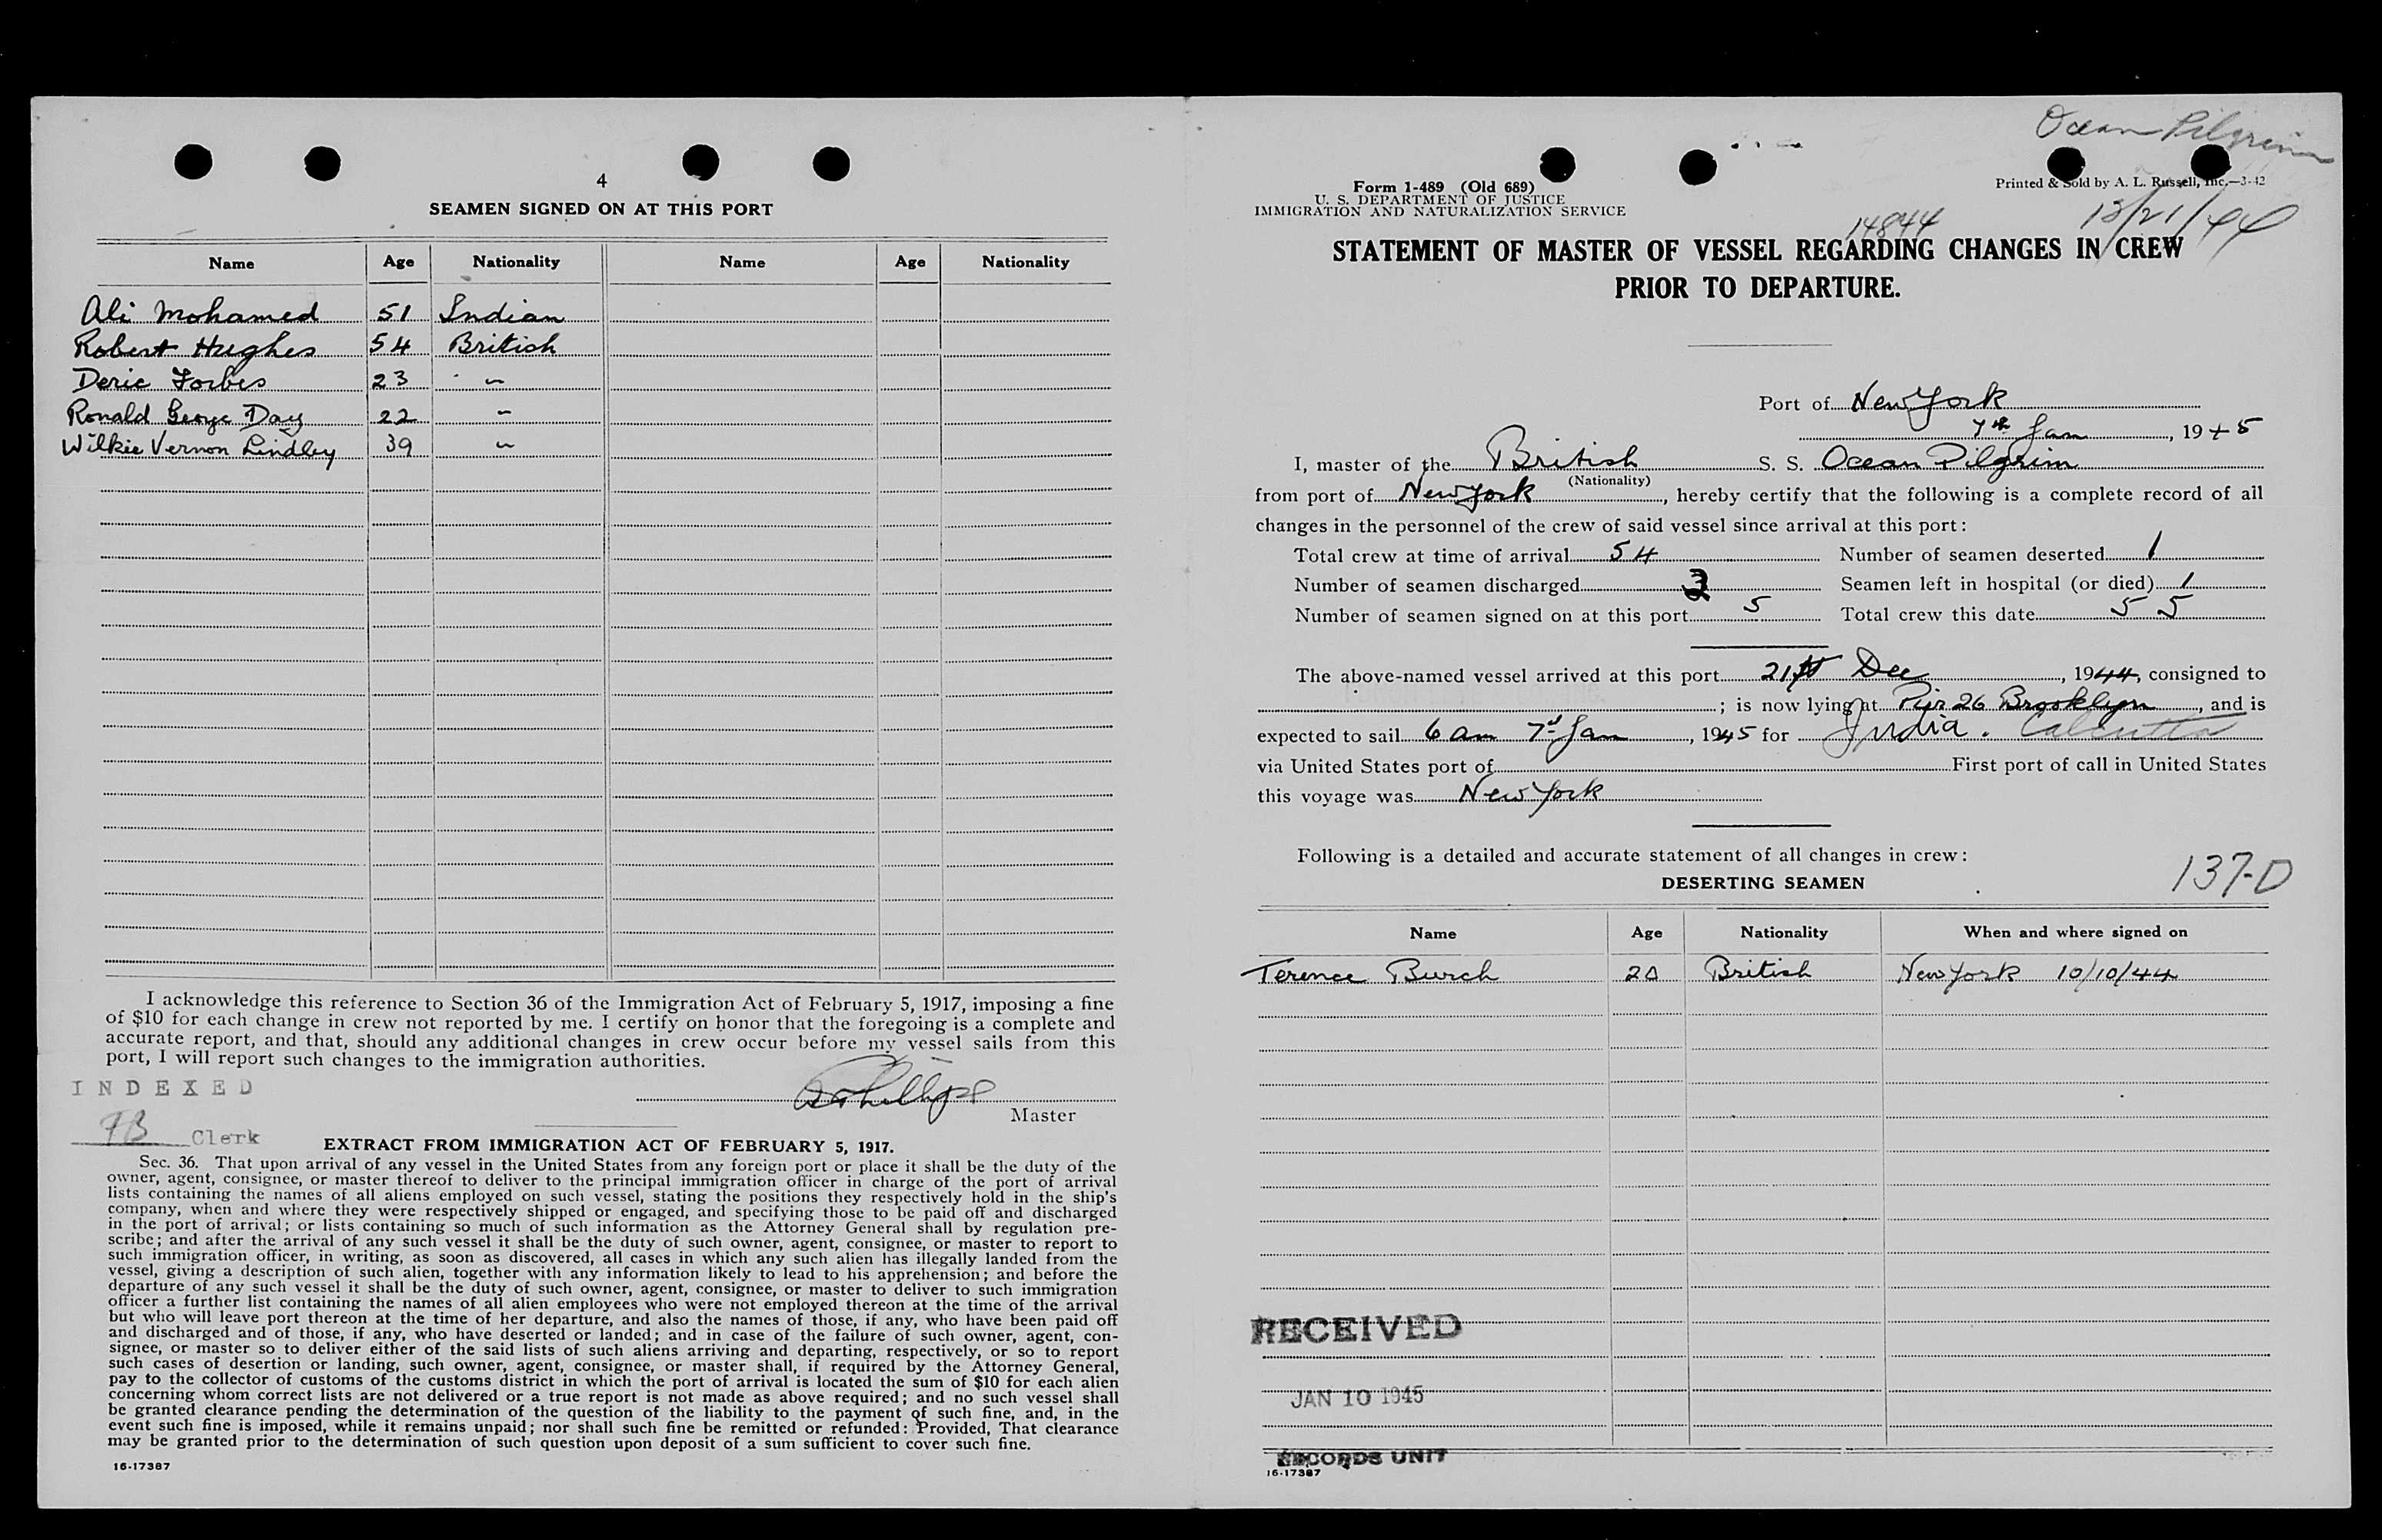 4
SEAMEN SIGNED ON AT THIS PORT
Name Age Nationality Name Age Nationality
Ali Mohamed 51 Indian
Robert Hughes 54 British
Deric Forbes 23 "
Ronald George Day 22 "
Wilkie Vernon Lindley 39 "
I acknowledge this reference to Section 36 of the Immigration Act of February 5, 1917, imposing a fine
of $10 for each change in crew not reported by me. I certify on honor that the foregoing is a complete and
accurate report, and that, should any additional changes in crew occur before my vessel sails from this
port, I will report such changes to the immigration authorities.
INDEXED
Master
FB Clerk
EXTRACT FROM IMMIGRATION ACT OF FEBRUARY 5, 1917.
Sec. 36. That upon arrival of any vessel in the United States from any foreign port or place it shall be the duty of the
owner, agent, consignee, or master thereof to deliver to the principal immigration officer in charge of the port of arrival
lists containing the names of all aliens employed on such vessel, stating the positions they respectively hold in the ship's
company, when and where they were respectively shipped or engaged, and specifying those to be paid off and discharged
in the port of arrival; or lists containing so much of such information as the Attorney General shall by regulation pre-
scribe; and after the arrival of any such vessel it shall be the duty of such owner, agent, consignee, or master to report to
such immigration officer, in writing, as soon as discovered, all cases in which any such alien has illegally landed from the
vessel, giving a description of such alien, together with any information likely to lead to his apprehension; and before the
departure of any such vessel it shall be the duty of such owner, agent, consignee, or master to deliver to such immigration
officer a further list containing the names of all alien employees who were not employed thereon at the time of the arrival
but who will leave port thereon at the time of her departure, and also the names of those, if any, who have been paid off
and discharged and of those, if any, who have deserted or landed; and in case of the failure of such owner, agent, con-
signee, or master so to deliver either of the said lists of such aliens arriving and departing, respectively, or so to report
such cases of desertion or landing, such owner, agent, consignee, or master shall, if required by the Attorney General,
pay to the collector of customs of the customs district in which the port of arrival is located the sum of $10 for each alien
concerning whom correct lists are not delivered or a true report is not made as above required; and no such vessel shall
be granted clearance pending the determination of the question of the liability to the payment of such fine, and, in the
event such fine is imposed, while it remains unpaid; nor shall such fine be remitted or refunded: Provided, That clearance
may be granted prior to the determination of such question upon deposit of a sum sufficient to cover such fine.
16-17387
Ocean Pilgrim
Form 1-489 (Old 689)
U. S. DEPARTMENT OF JUSTICE
IMMIGRATION AND NATURALIZATION SERVICE
Printed & Sold by A. L. Russell, Inc.—3-42
14844
12/21/44
STATEMENT OF MASTER OF VESSEL REGARDING CHANGES IN CREW
PRIOR TO DEPARTURE.
Port of New York
7th Jan, 1945
I, master of the British S. S. Ocean Pilgrim
(Nationality)
from port of New York, hereby certify that the following is a complete record of all
changes in the personnel of the crew of said vessel since arrival at this port:
Total crew at time of arrival 54 Number of seamen deserted 1
Number of seamen discharged Seamen left in hospital (or died) 1
Number of seamen signed on at this port 5 Total crew this date 55
The above-named vessel arrived at this port 21st Dec, 1944, consigned to
; is now lying at Pier 26 Brooklyn, and is
expected to sail 6 am 7th Jan, 1945 for India. Calcutta
via United States port of First port of call in United States
this voyage was New York
Following is a detailed and accurate statement of all changes in crew:
137-D
DESERTING SEAMEN
Name Age Nationality When and where signed on
Terence Burch 20 British New York 10/10/44
RECEIVED
JAN 10 1945
RECORDS UNIT
16-17387